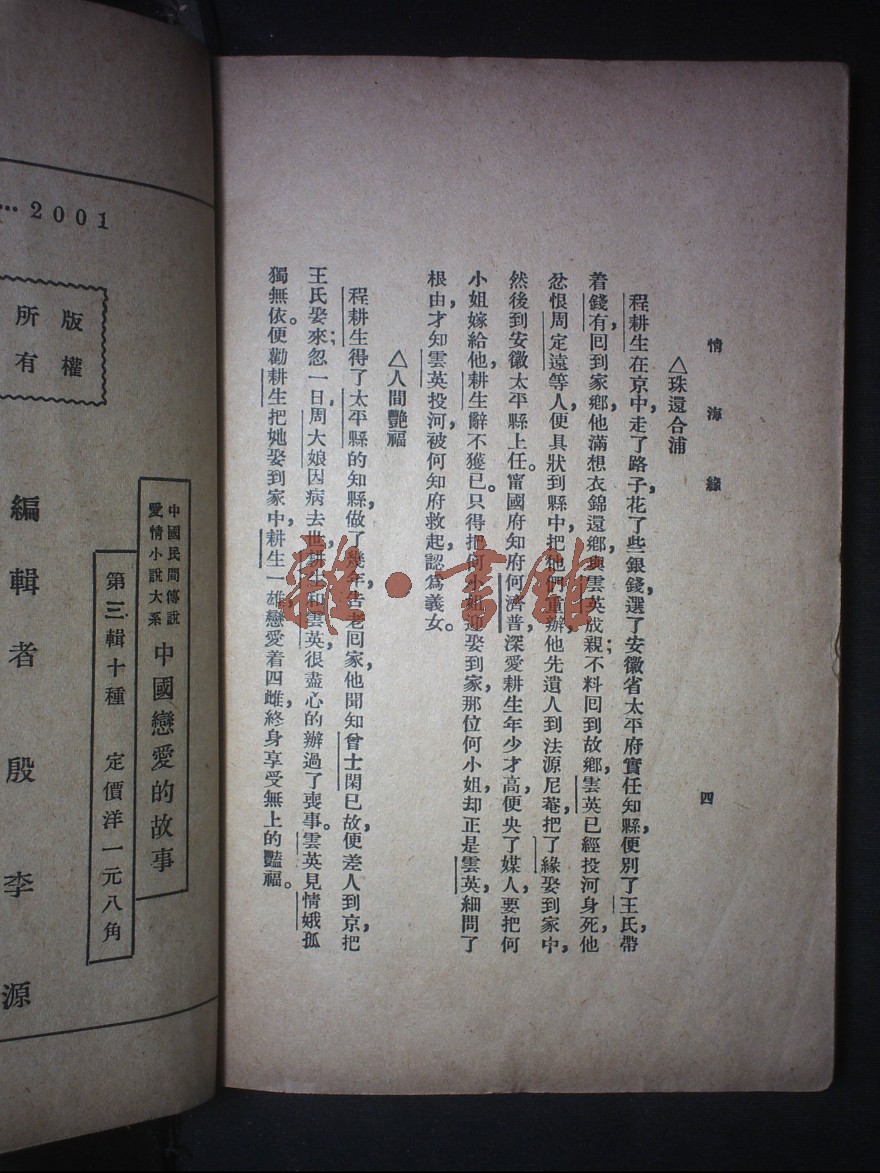 情海緣
四
△珠還合浦
程耕生在京中，走了路子，花了些銀錢，選了安徽省太平府實任知縣，便別了王氏，帶
着錢有，回到家鄉，他滿想衣錦還鄉，與雲英成親；不料回到故鄉，雲英已經投河身死，他
忿恨周定遠等人，便具狀到縣中，把他們重辦，他先遣人到法源尼菴，把了緣娶到家中，
然後到安徽太平縣上任。甯國府知府何濟普深愛耕生年少才高，便央了媒人，要把何
小姐嫁給他，耕生辭不獲已。只得把何小姐迎娶到家，那位何小姐，却正是雲英，細問了
根由，才知雲英投河，被何知府救起，認爲義女。
△人間艷福
程耕生得了太平縣的知縣，做了幾年，告老回家，他聞知曾士閑已故，便差人到京，把
王氏娶來；忽一日，周大娘因病去世，耕生和雲英很盡心的辦過了喪事。雲英見情娥孤
獨無依。便勸耕生把她娶到家中，耕生一雄戀愛着四雌，終身享受無上的豔福。
…2001
版權
所有
中國民間傳說
愛情小說大系
中國戀愛的故事
第三輯十種 定價洋一元八角
編輯者 殷李源
雜·書舖